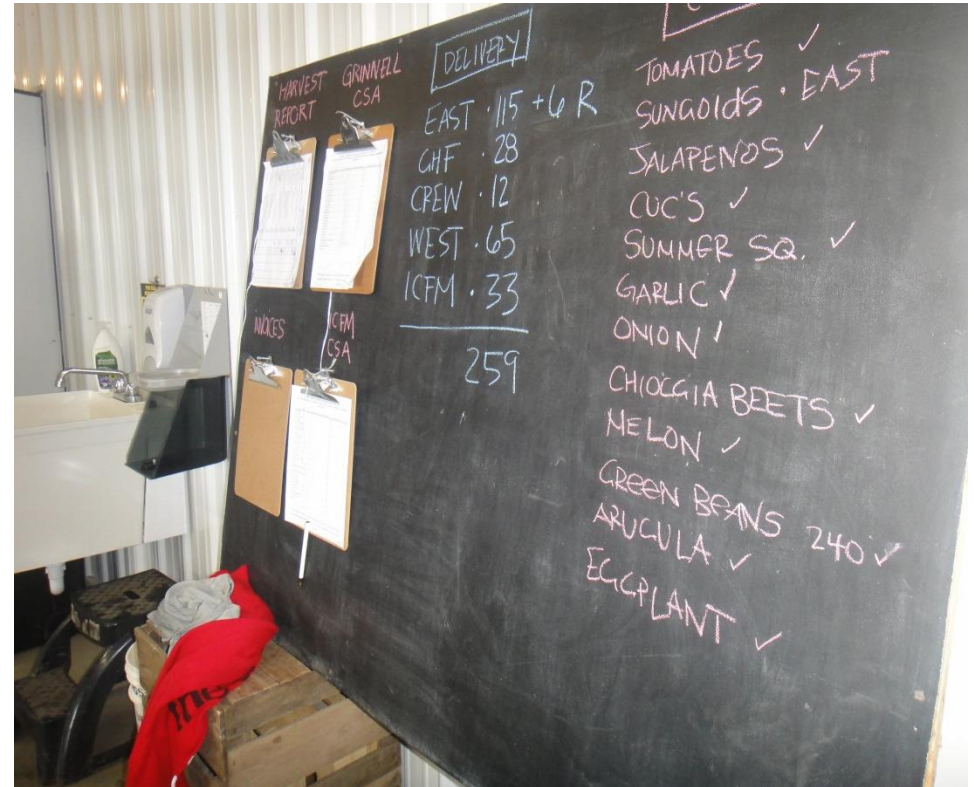 HARVEST REPORT
GRINNELL CSA
INVOICES
ICFM CSA
DELIVERY
EAST · 115 + 6 R
GHF · 28
CREW · 12
WEST · 65
ICFM · 33
259
TOMATOES ✓
SUNGOLDS · EAST
JALAPENOS ✓
CUC'S ✓
SUMMER SQ. ✓
GARLIC ✓
ONION ✓
CHIOGGIA BEETS ✓
MELON ✓
GREEN BEANS 240 ✓
ARUGULA ✓
EGGPLANT ✓